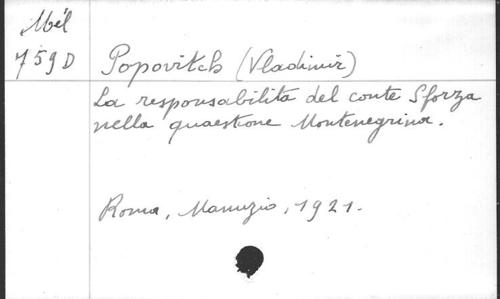 Mél
759 D
Popovitch (Vladimir)
La responsabilita del conte Sforza
nella quaestione Montenegrina.
Roma, Manuzio, 1921.